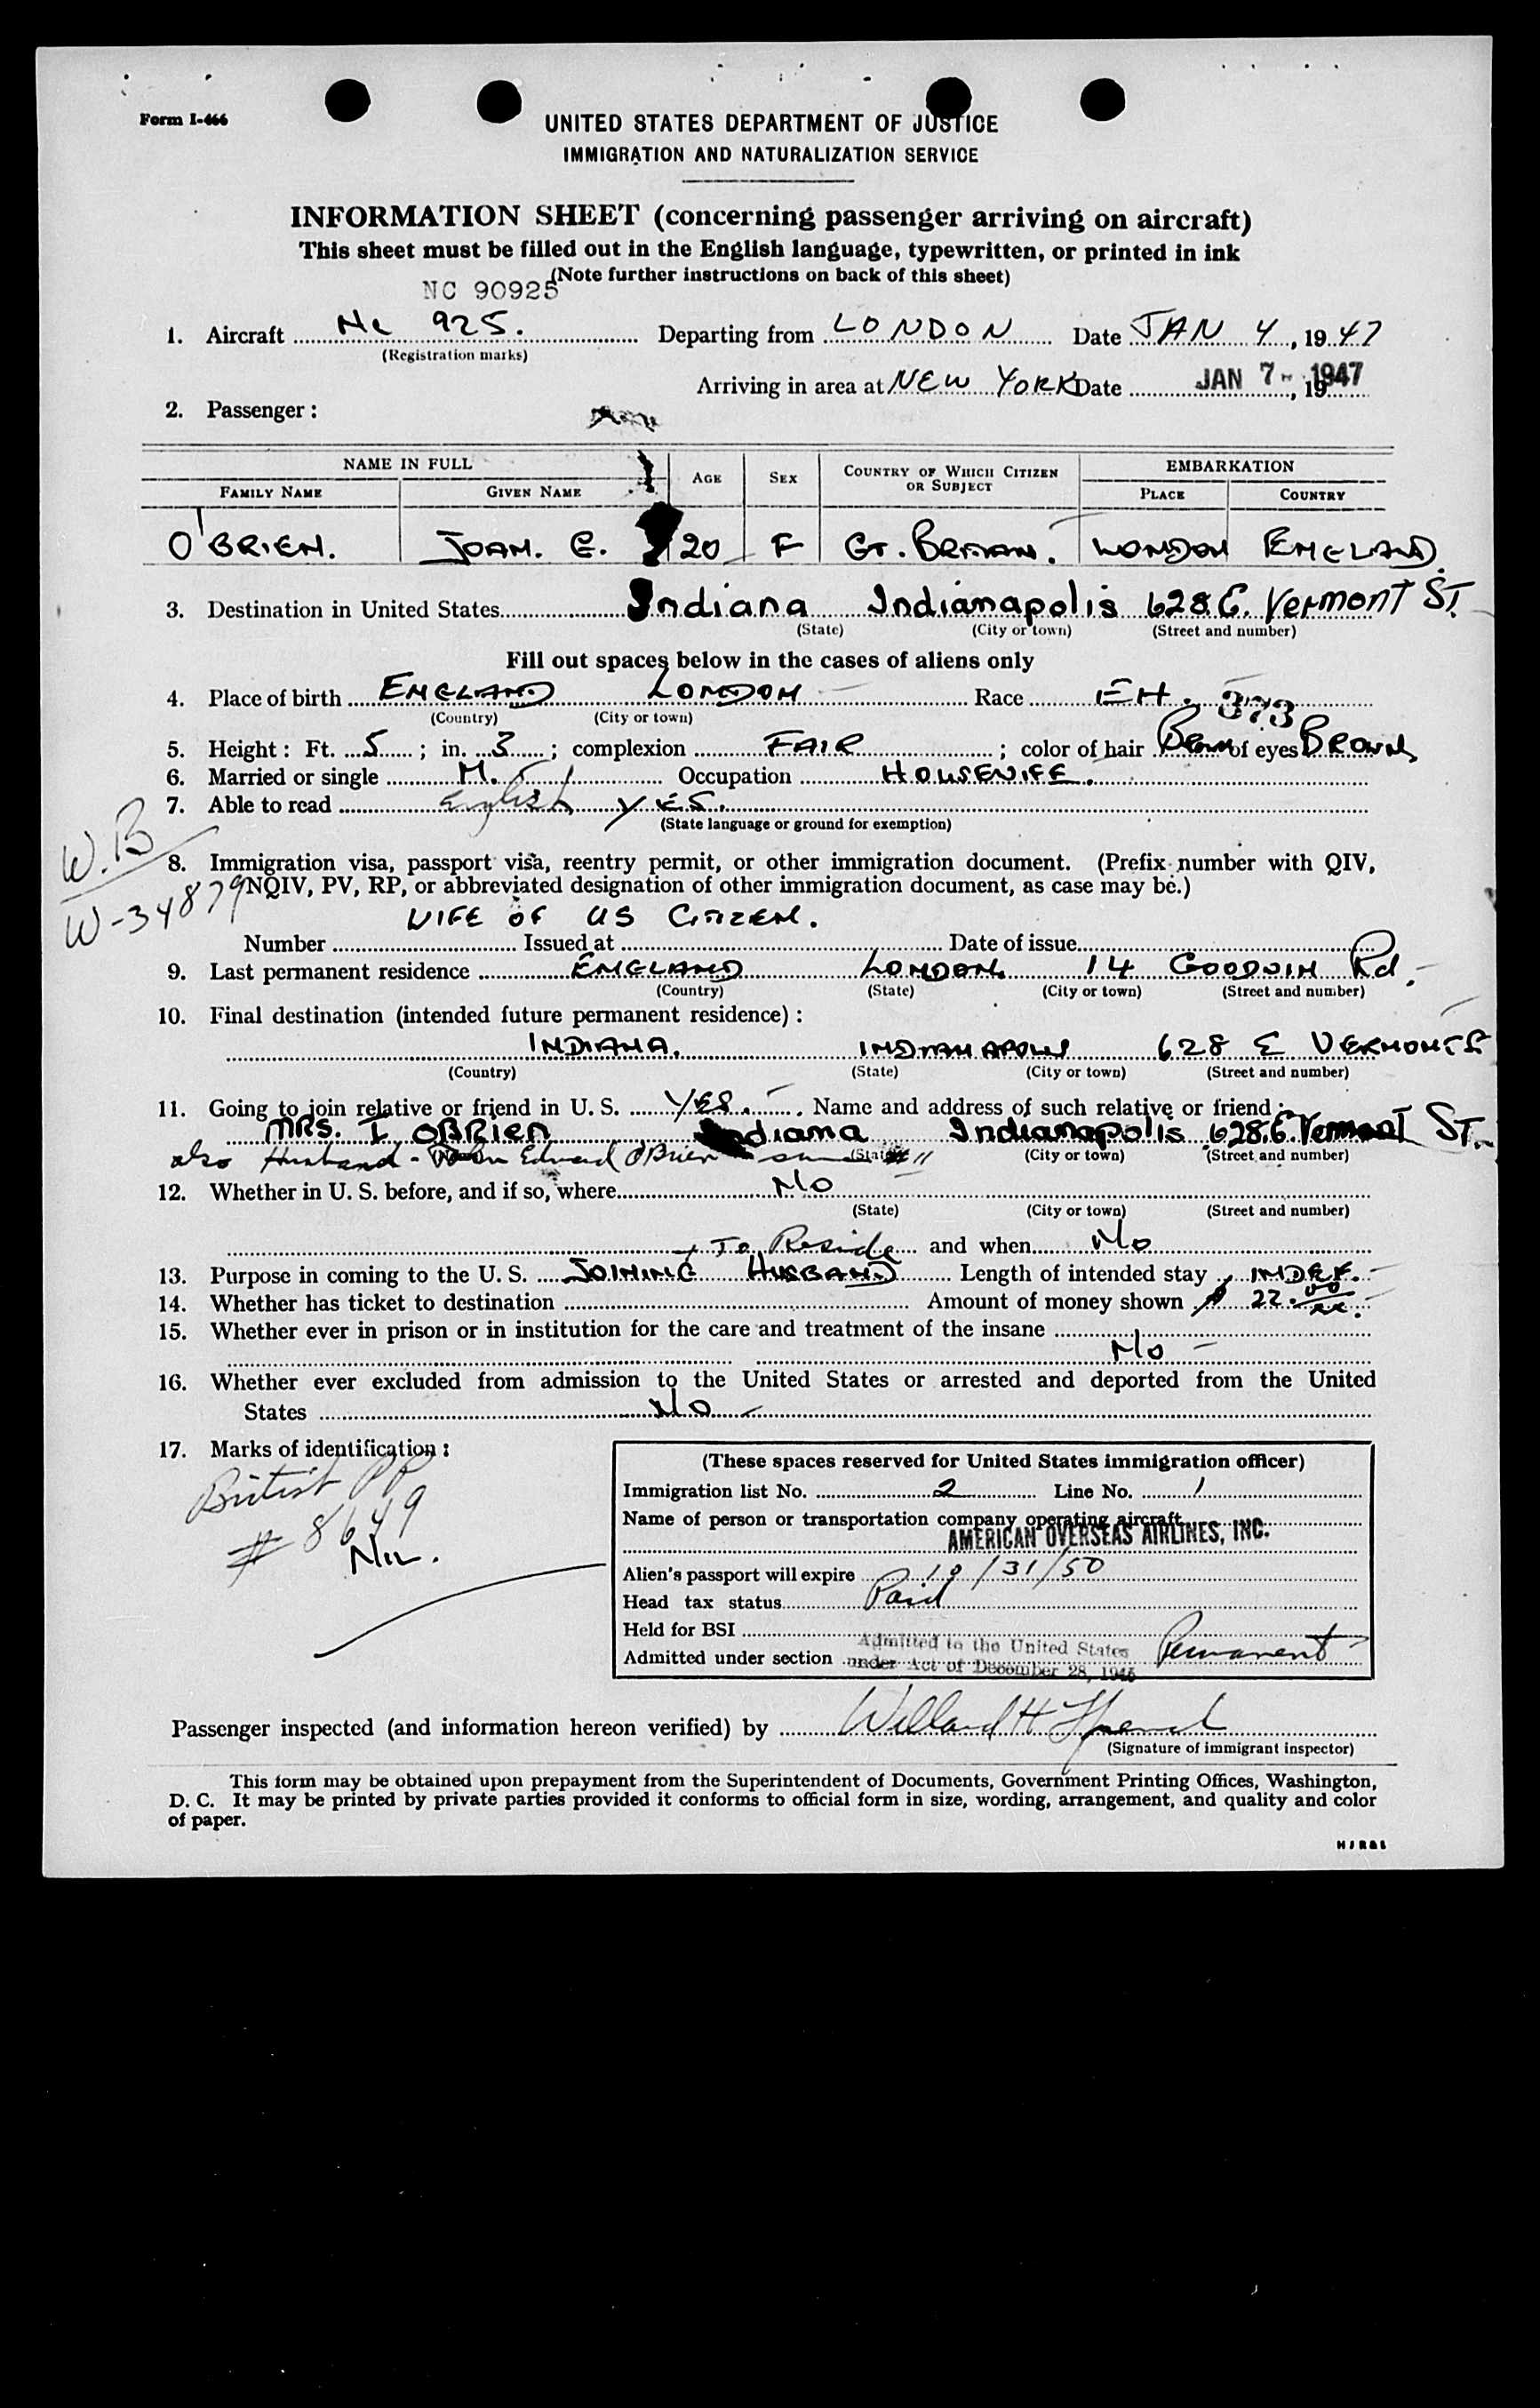 Form I-466
UNITED STATES DEPARTMENT OF JUSTICE
IMMIGRATION AND NATURALIZATION SERVICE
INFORMATION SHEET (concerning passenger arriving on aircraft)
This sheet must be filled out in the English language, typewritten, or printed in ink
(Note further instructions on back of this sheet)
NC 90925
1. Aircraft Nc 925. Departing from LONDON Date JAN 4, 1947
(Registration marks)
Arriving in area at NEW YORK Date JAN 7- 1947, 19
2. Passenger:
NAME IN FULL AGE SEX COUNTRY OF WHICH CITIZEN OR SUBJECT EMBARKATION
FAMILY NAME GIVEN NAME PLACE COUNTRY
O'BRIEN. JOAN. E. 20 F GT. BRITAIN. LONDON ENGLAND.
3. Destination in United States Indiana Indianapolis 628 E. Vermont ST.
(State) (City or town) (Street and number)
Fill out spaces below in the cases of aliens only
4. Place of birth ENGLAND LONDON Race EN. 373
(Country) (City or town)
5. Height: Ft. 5; in. 3; complexion FAIR; color of hair Brown of eyes BROWN
6. Married or single M. Occupation HOUSEWIFE.
7. Able to read English YES.
(State language or ground for exemption)
W.B
W-34879
8. Immigration visa, passport visa, reentry permit, or other immigration document. (Prefix number with QIV,
NQIV, PV, RP, or abbreviated designation of other immigration document, as case may be.)
WIFE OF US CITIZEN.
Number Issued at Date of issue
9. Last permanent residence ENGLAND LONDON. 14 GOODWIN Rd.
(Country) (State) (City or town) (Street and number)
10. Final destination (intended future permanent residence):
INDIANA. INDIANAPOLIS 628 E VERMONT ST
(Country) (State) (City or town) (Street and number)
11. Going to join relative or friend in U. S. YES. Name and address of such relative or friend:
MRS. I OBRIEN Indiana Indianapolis 628 E Vermont ST.
also Husband - Edward O'Brien - same # 11
(State) (City or town) (Street and number)
12. Whether in U. S. before, and if so, where No
(State) (City or town) (Street and number)
+ To Reside and when No
13. Purpose in coming to the U. S. JOINING HUSBAND Length of intended stay INDEF.
14. Whether has ticket to destination Amount of money shown $ 22.00
15. Whether ever in prison or in institution for the care and treatment of the insane
No -
16. Whether ever excluded from admission to the United States or arrested and deported from the United
States No
17. Marks of identification:
British PP
# 8649
NIL.
(These spaces reserved for United States immigration officer)
Immigration list No. 2 Line No. 1
Name of person or transportation company operating aircraft
AMERICAN OVERSEAS AIRLINES, INC.
Alien's passport will expire 10/31/50
Head tax status Paid
Held for BSI
Admitted to the United States Permanent
Admitted under section under Act of December 28, 1945
Passenger inspected (and information hereon verified) by Willard H
(Signature of immigrant inspector)
This form may be obtained upon prepayment from the Superintendent of Documents, Government Printing Offices, Washington,
D. C. It may be printed by private parties provided it conforms to official form in size, wording, arrangement, and quality and color
of paper.